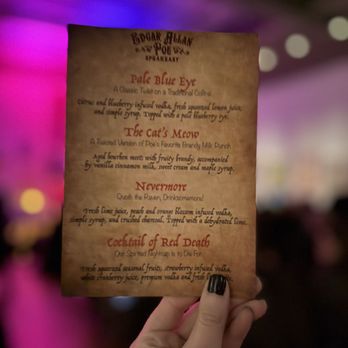 EDGAR ALLAN
POE
SPEAKEASY
Pale Blue Eye
A Classic Twist on a Traditional Collins!
Citrus and blueberry infused vodka, fresh squeezed lemon juice,
and simple syrup. Topped with a pale blueberry eye.
The Cat's Meow
A Twisted Version of Poe's Favorite Brandy Milk Punch
Aged bourbon meets with fruity brandy, accompanied
by vanilla cinnamon milk, sweet cream and maple syrup.
Nevermore
Quoth the Raven, Drinksomemore!
Fresh lime juice, peach and orange blossom infused vodka,
simple syrup, and crushed charcoal. Topped with a dehydrated lime.
Cocktail of Red Death
One Spirited Nightcap is to Die For
Fresh squeezed seasonal fruits, strawberry infused vodka,
white cranberry juice, premium vodka and fresh